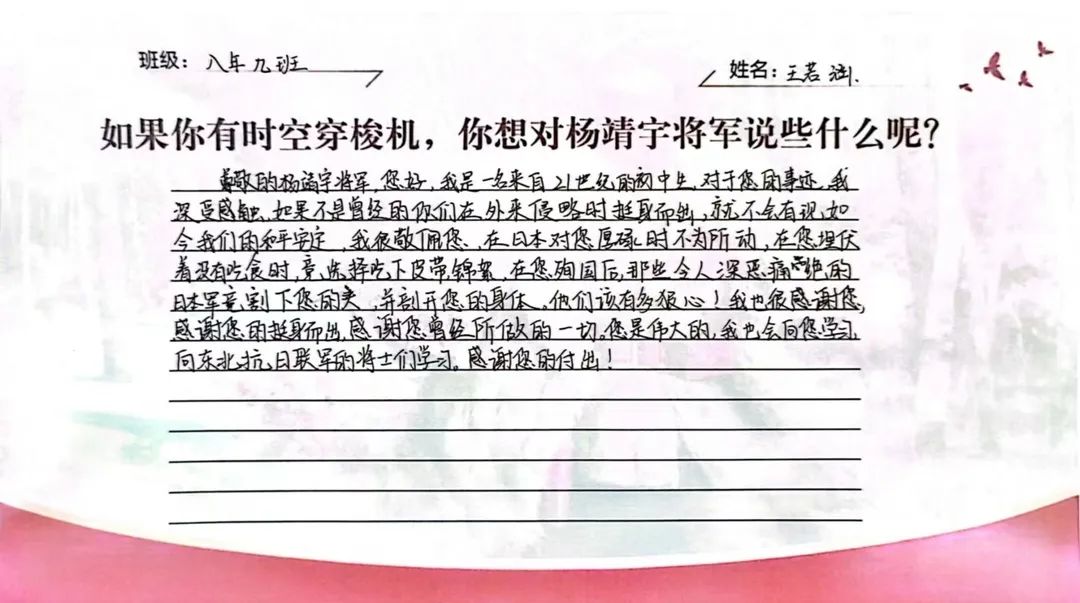 班级：八年九班
姓名：王若
如果你有时空穿梭机，你想对杨靖宇将军说些什么呢？
尊敬的杨靖宇将军，您好，我是一名来自21世纪的初中生，对于您的事迹，我
深受感触、如果不是曾经的你们在外来侵略时挺身而出，就不会有现如
今我们的和平安定，我很敬佩您、在日本对您厚碌时不为所动，在您埋伏
着没有吃食时，竟选择吃下皮带锦絮，在您殉国后，那些令人深恶痛绝的
日本军竟割下您的头，并剖开您的身体，他们该有多狠心！我也很感谢您，
感谢您的挺身而出，感谢您曾经所做的一切。您是伟大的，我也会向您学习，
向东北抗日联军的将士们学习。感谢您的付出！